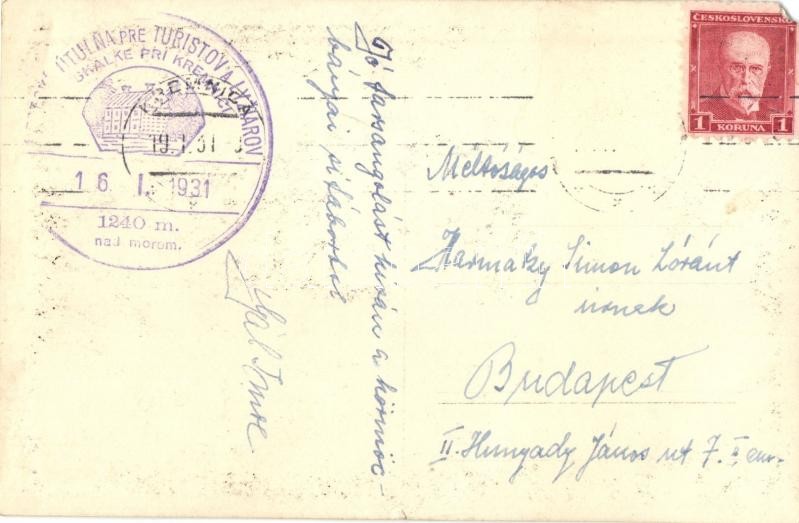 ÚTULŇA PRE TURISTOV A LYŽIAROV
SKALKE PRI KREMNICI
KREMNICA
19.I.31
16. I. 1931
1240 m.
nad morom.
Jó farsangolást kíván a körmöc-
bányai si táborból
Gál Imre
ČESKOSLOVENSKO
1 KORUNA 1
Méltóságos
Harmatzy Simon Lóránt
úrnak
Budapest
II. Hunyady János út 7. I em.